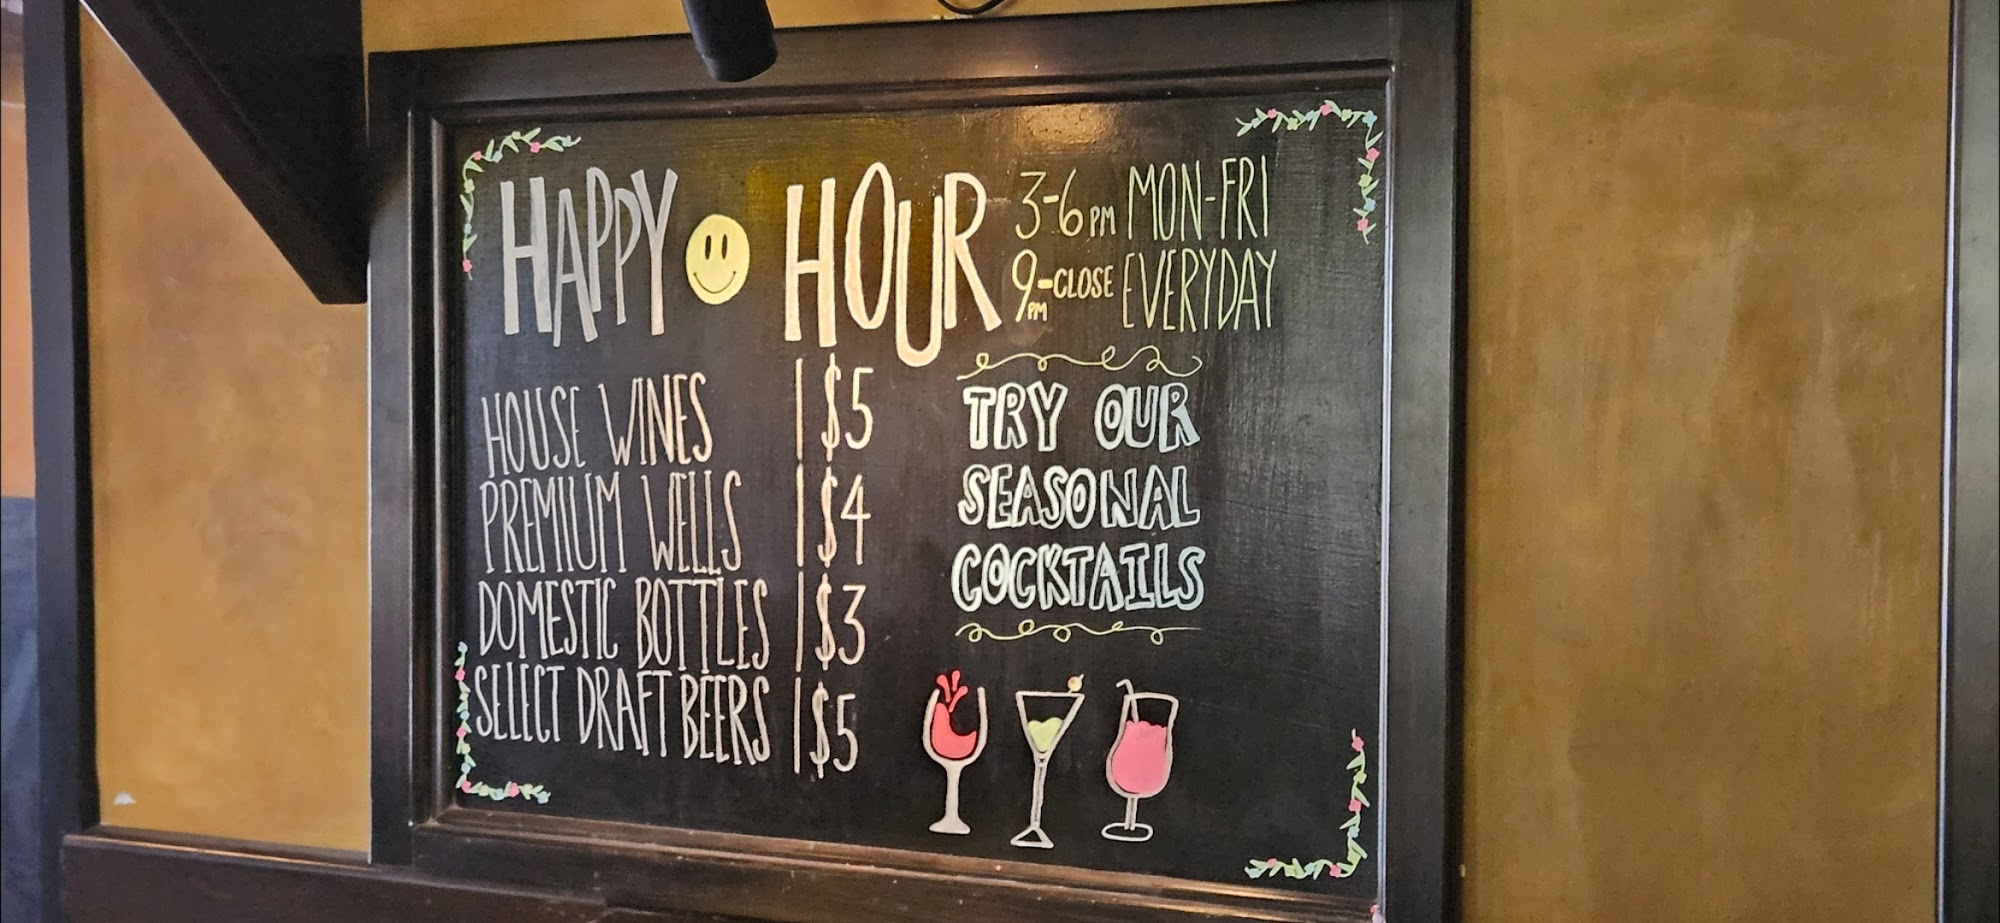 HAPPY HOUR
3-6 PM MON-FRI
9 PM-CLOSE EVERYDAY
HOUSE WINES | $5
PREMIUM WELLS | $4
DOMESTIC BOTTLES | $3
SELECT DRAFT BEERS | $5
TRY OUR
SEASONAL
COCKTAILS